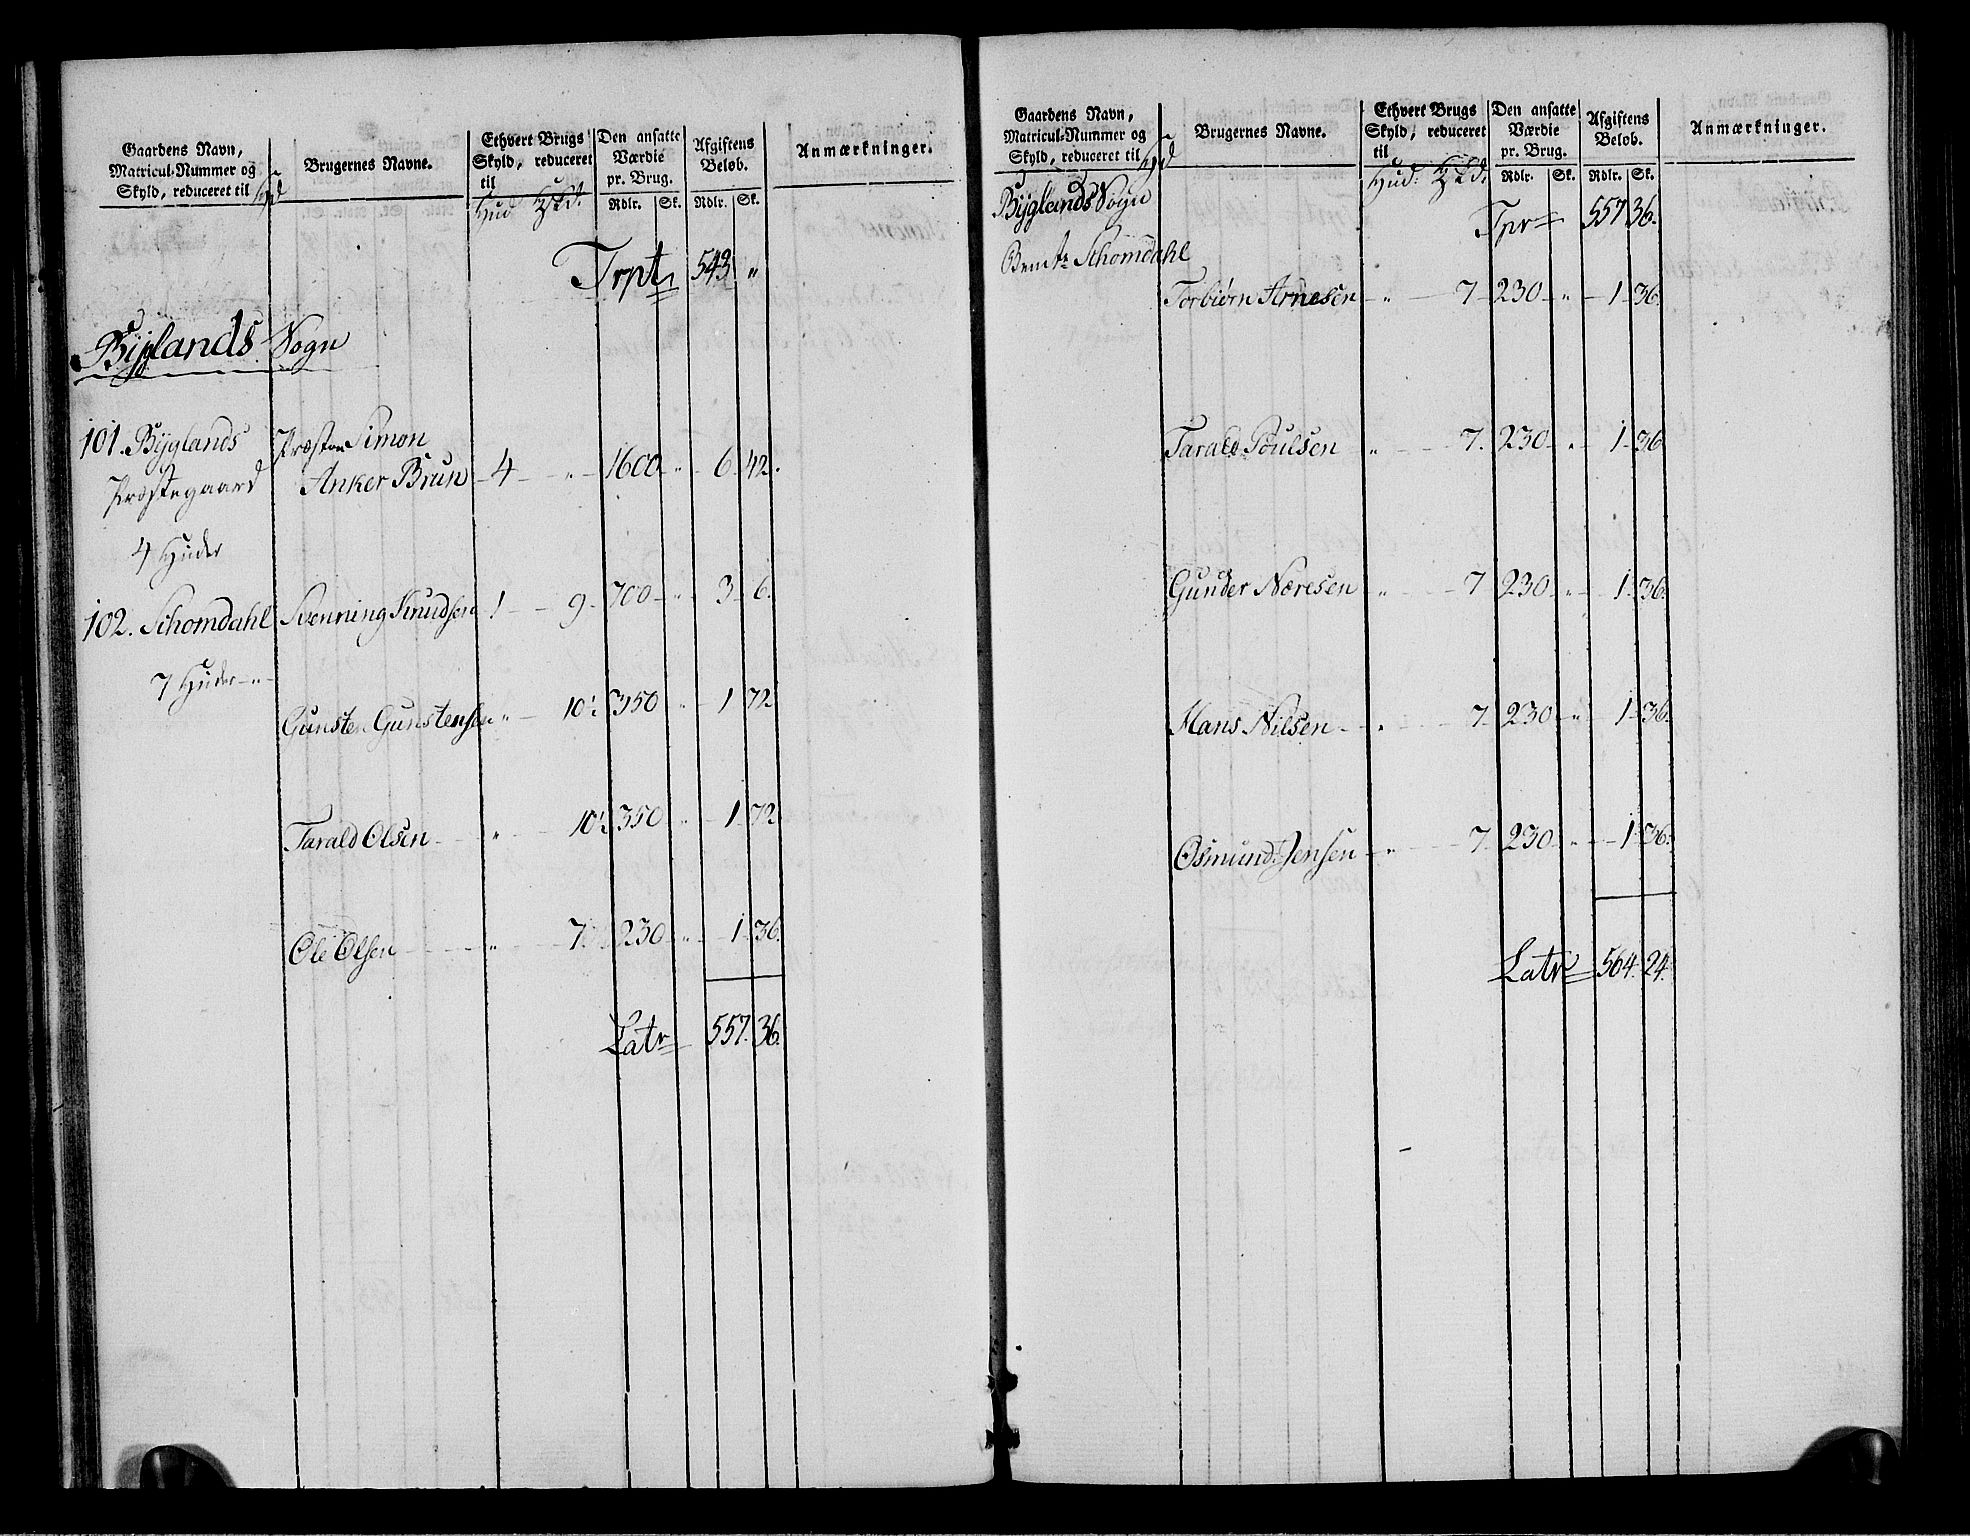 Gaardens Navn,
Matricul-Nummer og
Skyld, reduceret til
Brugernes Navne.
Ethvert Brugs
Skyld, reduceret
til
Hud
Den ansatte
Værdie
pr. Brug.
Rdlr. Sk.
Afgiftens
Beløb.
Rdlr. Sk.
Anmærkninger.
Trpt 543 "
Byglands Sogn
101. Byglands Præsten Simon
Præstegaard Anker Brun 4 " 1600 " 6 42.
4 Huder
102. Schomdahl Svenning Knudsen 1 9 700 " 3 6.
7 Huder "
Gunsten Gunstensen " 10½ 350 " 1 72
Tarald Olsen " 10½ 350 " 1 72
Ole Olsen " 7. 230 " 1 36.
Latr 557. 36.
Gaardens Navn,
Matricul-Nummer og
Skyld, reduceret til
Brugernes Navne.
Ethvert Brugs
Skyld, reduceret
til
Hud.
Den ansatte
Værdie
pr. Brug.
Rdlr. Sk.
Afgiftens
Beløb.
Rdlr. Sk.
Anmærkninger.
Byglands Sogn
Tpr 557 36.
Schomdahl
Torbiørn Arnesen " 7 230 " 1 36.
Tarald Poulsen " 7. 230 " 1 36
Gunder Næresen " 7 230 " 1 36.
Hans Nilsen " 7. 230 " 1 36.
Osmund Jensen " 7. 230 " 1 36.
Latr 564. 24.